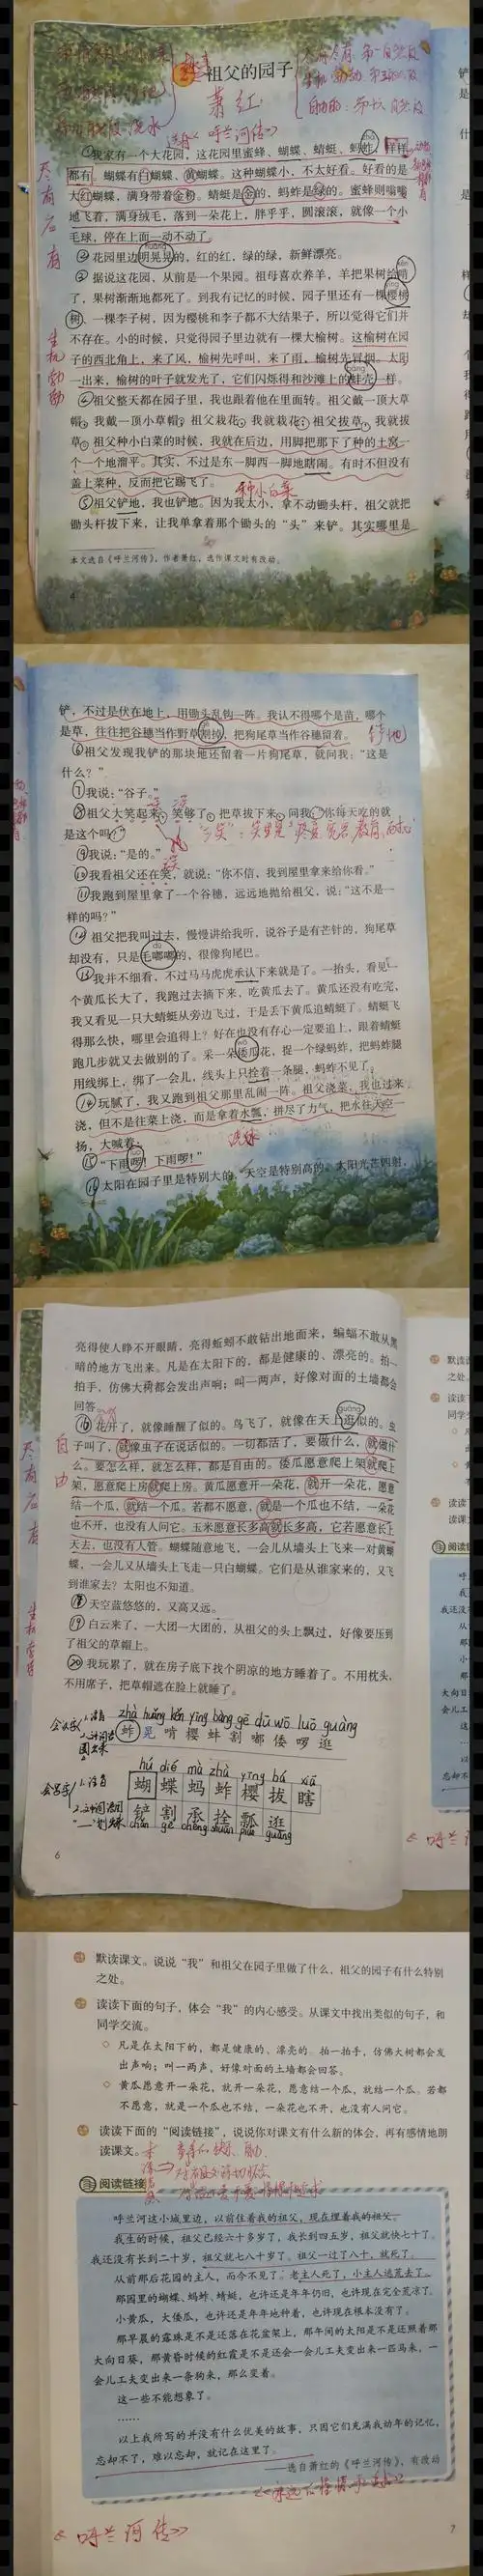 2 祖父的园子
萧红
选自《呼兰河传》
①我家有一个大花园，这花园里蜜蜂、蝴蝶、蜻蜓、蚂蚱，样样
都有。蝴蝶有白蝴蝶、黄蝴蝶。这种蝴蝶小，不太好看。好看的是
大红蝴蝶，满身带着金粉。蜻蜓是金的，蚂蚱是绿的。蜜蜂则嗡嗡
地飞着，满身绒毛，落到一朵花上，胖乎乎，圆滚滚，就像一个小
毛球，停在上面一动不动了。
②花园里边明晃晃的，红的红，绿的绿，新鲜漂亮。
③据说这花园，从前是一个果园。祖母喜欢养羊，羊把果树给啃
了，果树渐渐地都死了。到我有记忆的时候，园子里还有一棵樱桃
树、一棵李子树，因为樱桃和李子都不大结果子，所以觉得它们并
不存在。小的时候，只觉得园子里边就有一棵大榆树。这榆树在园
子的西北角上，来了风，榆树先呼叫，来了雨，榆树先冒烟。太阳
一出来，榆树的叶子就发光了，它们闪烁得和沙滩上的蚌壳一样。
④祖父整天都在园子里，我也跟着他在里面转。祖父戴一顶大草
帽，我戴一顶小草帽；祖父栽花，我就栽花；祖父拔草，我就拔
草。祖父种小白菜的时候，我就在后边，用脚把那下了种的土窝
一个一个地溜平。其实，不过是东一脚西一脚地瞎闹。有时不但没有
盖上菜种，反而把它踢飞了。
种小白菜
⑤祖父铲地，我也铲地。因为我太小，拿不动锄头杆，祖父就把
锄头杆拔下来，让我单拿着那个锄头的“头”来铲。其实哪里是
本文选自《呼兰河传》，作者萧红，选作课文时有改动。
4
铲，不过是伏在地上，用锄头乱钩一阵。我认不得哪个是苗，哪个
是草，往往把谷穗当作野草割掉，把狗尾草当作谷穗留着。
铲地
⑥祖父发现我铲的那块地还留着一片狗尾草，就问我：“这是
什么？”
⑦我说：“谷子。”
⑧祖父大笑起来，笑够了，把草拔下来，问我：“你每天吃的就
是这个吗？”
⑨我说：“是的。”
⑩我看祖父还在笑，就说：“你不信，我到屋里拿来给你看。”
⑪我跑到屋里拿了一个谷穗，远远地抛给祖父，说：“这不是一
样的吗？”
⑫祖父把我叫过去，慢慢讲给我听，说谷子是有芒针的，狗尾草
却没有，只是毛嘟嘟的，很像狗尾巴。
⑬我并不细看，不过马马虎虎承认下来就是了。一抬头，看见一
个黄瓜长大了，我跑过去摘下来，吃黄瓜去了。黄瓜还没有吃完，
我又看见一只大蜻蜓从旁边飞过，于是丢下黄瓜追蜻蜓了。蜻蜓飞
得那么快，哪里会追得上？好在也没有存心一定要追上，跟着蜻蜓
跑几步就又去做别的了。采一朵倭瓜花，捉一个绿蚂蚱，把蚂蚱腿
用线绑上，绑了一会儿，线头上只拴着一条腿，蚂蚱不见了。
⑭玩腻了，我又跑到祖父那里乱闹一阵。祖父浇菜，我也过来
浇，但不是往菜上浇，而是拿着水瓢，拼尽了力气，把水往天空一
扬，大喊着：
浇水
⑮“下雨啰！下雨啰！”
⑯太阳在园子里是特别大的，天空是特别高的。太阳光芒四射，
亮得使人睁不开眼睛，亮得蚯蚓不敢钻出地面来，蝙蝠不敢从黑
暗的地方飞出来。凡是在太阳下的，都是健康的、漂亮的。拍一
拍手，仿佛大树都会发出声响；叫一两声，好像对面的土墙都会
回答。
⑯花开了，就像睡醒了似的。鸟飞了，就像在天上逛似的。虫
子叫了，就像虫子在说话似的。一切都活了，要做什么，就做什
么。要怎么样，就怎么样，都是自由的。倭瓜愿意爬上架就爬上
架，愿意爬上房就爬上房。黄瓜愿意开一朵花，就开一朵花，愿意
结一个瓜，就结一个瓜。若都不愿意，就是一个瓜也不结，一朵花
也不开，也没有人问它。玉米愿意长多高就长多高，它若愿意长上
天去，也没有人管。蝴蝶随意地飞，一会儿从墙头上飞来一对黄蝴
蝶，一会儿又从墙头上飞走一只白蝴蝶。它们是从谁家来的，又飞
到谁家去？太阳也不知道。
⑱天空蓝悠悠的，又高又远。
⑲白云来了，一大团一大团的，从祖父的头上飘过，好像要压到
了祖父的草帽上。
⑳我玩累了，就在房子底下找个阴凉的地方睡着了。不用枕头，
不用席子，把草帽遮在脸上就睡了。
zhà huǎng kěn yīng bàng gē dū wō luō guàng
蚱 晃 啃 樱 蚌 割 嘟 倭 啰 逛
hú dié mà zhà yīng bá xiā
蝴 蝶 蚂 蚱 樱 拔 瞎
铲 割 承 拴 瓢 逛
chǎn gē chéng shuān piáo guàng
6
默读课文。说说“我”和祖父在园子里做了什么，祖父的园子有什么特别
之处。
读读下面的句子，体会“我”的内心感受。从课文中找出类似的句子，和
同学交流。
凡是在太阳下的，都是健康的、漂亮的。拍一拍手，仿佛大树都会发
出声响；叫一两声，好像对面的土墙都会回答。
黄瓜愿意开一朵花，就开一朵花，愿意结一个瓜，就结一个瓜。若都
不愿意，就是一个瓜也不结，一朵花也不开，也没有人问它。
读读下面的“阅读链接”，说说你对课文有什么新的体会，再有感情地朗
读课文。
阅读链接
呼兰河这小城里边，以前住着我的祖父，现在埋着我的祖父。
我生的时候，祖父已经六十多岁了，我长到四五岁，祖父就快七十了。
我还没有长到二十岁，祖父就七八十岁了。祖父一过了八十，就死了。
从前那后花园的主人，而今不见了。老主人死了，小主人逃荒去了。
那园里的蝴蝶、蚂蚱、蜻蜓，也许还是年年仍旧，也许现在完全荒凉了。
小黄瓜，大倭瓜，也许还是年年地种着，也许现在根本没有了。
那早晨的露珠是不是还落在花盆架上，那午间的太阳是不是还照着那
大向日葵，那黄昏时候的红霞是不是还会一会儿工夫变出来一匹马来，一
会儿工夫变出来一条狗来，那么变着。
这一些不能想象了。
……
以上我所写的并没有什么优美的故事，只因它们充满我幼年的记忆，
忘却不了，难以忘却，就记在这里了。
——选自萧红的《呼兰河传》，有改动
《呼兰河传》
7